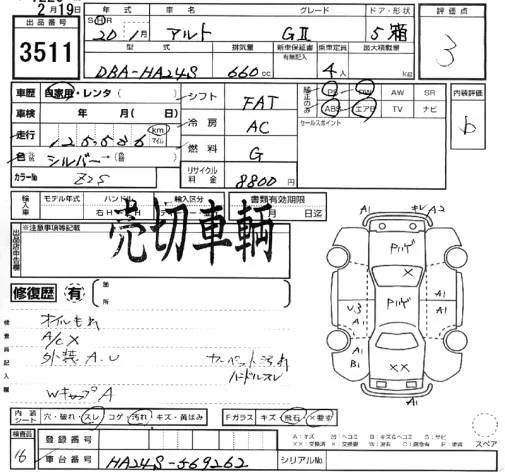 2月19日
出品番号
3511
年式
車名
グレード
ドア・形状
評価点
S H 20年1月
アルト
GⅡ
5 箱
3
型式
排気量
新車保証書
有無記入
乗車定員
最大積載量
DBA-HA24S
660cc
4人
kg
車歴
自家用・レンタ
シフト
FAT
純正のみ
PS
PW
AW
SR
ABS
エアB
TV
ナビ
内装評価
b
車検
年 月 日
冷房
AC
セールスポイント
走行
km
マイル
燃料
G
色
シルバー
カラーNo
Z2S
リサイクル料金
8800円
輸入車
モデル年式
ハンドル
輸入区分
書類有効期限
右H
月 日迄
出品店申告欄
※注意事項等記載
売切車輌
修復歴
有
箇所
検査員記入欄
オイルもれ
A/C X
外装 A.U
カーペット汚れ
ハンドルスレ
WキャップA
A1
キレ
A2
Pハゲ
X
A1
PハゲA1
U3
A1
A1
B1
A1
XX
A1
内装シート
穴・破れ・スレ
コゲ・汚れ
キズ・黄ばみ
Fガラス
キズ
飛石
×要す
スペア
検査員
16
登録番号
車台番号
HA24S-569262
シリアルNo.